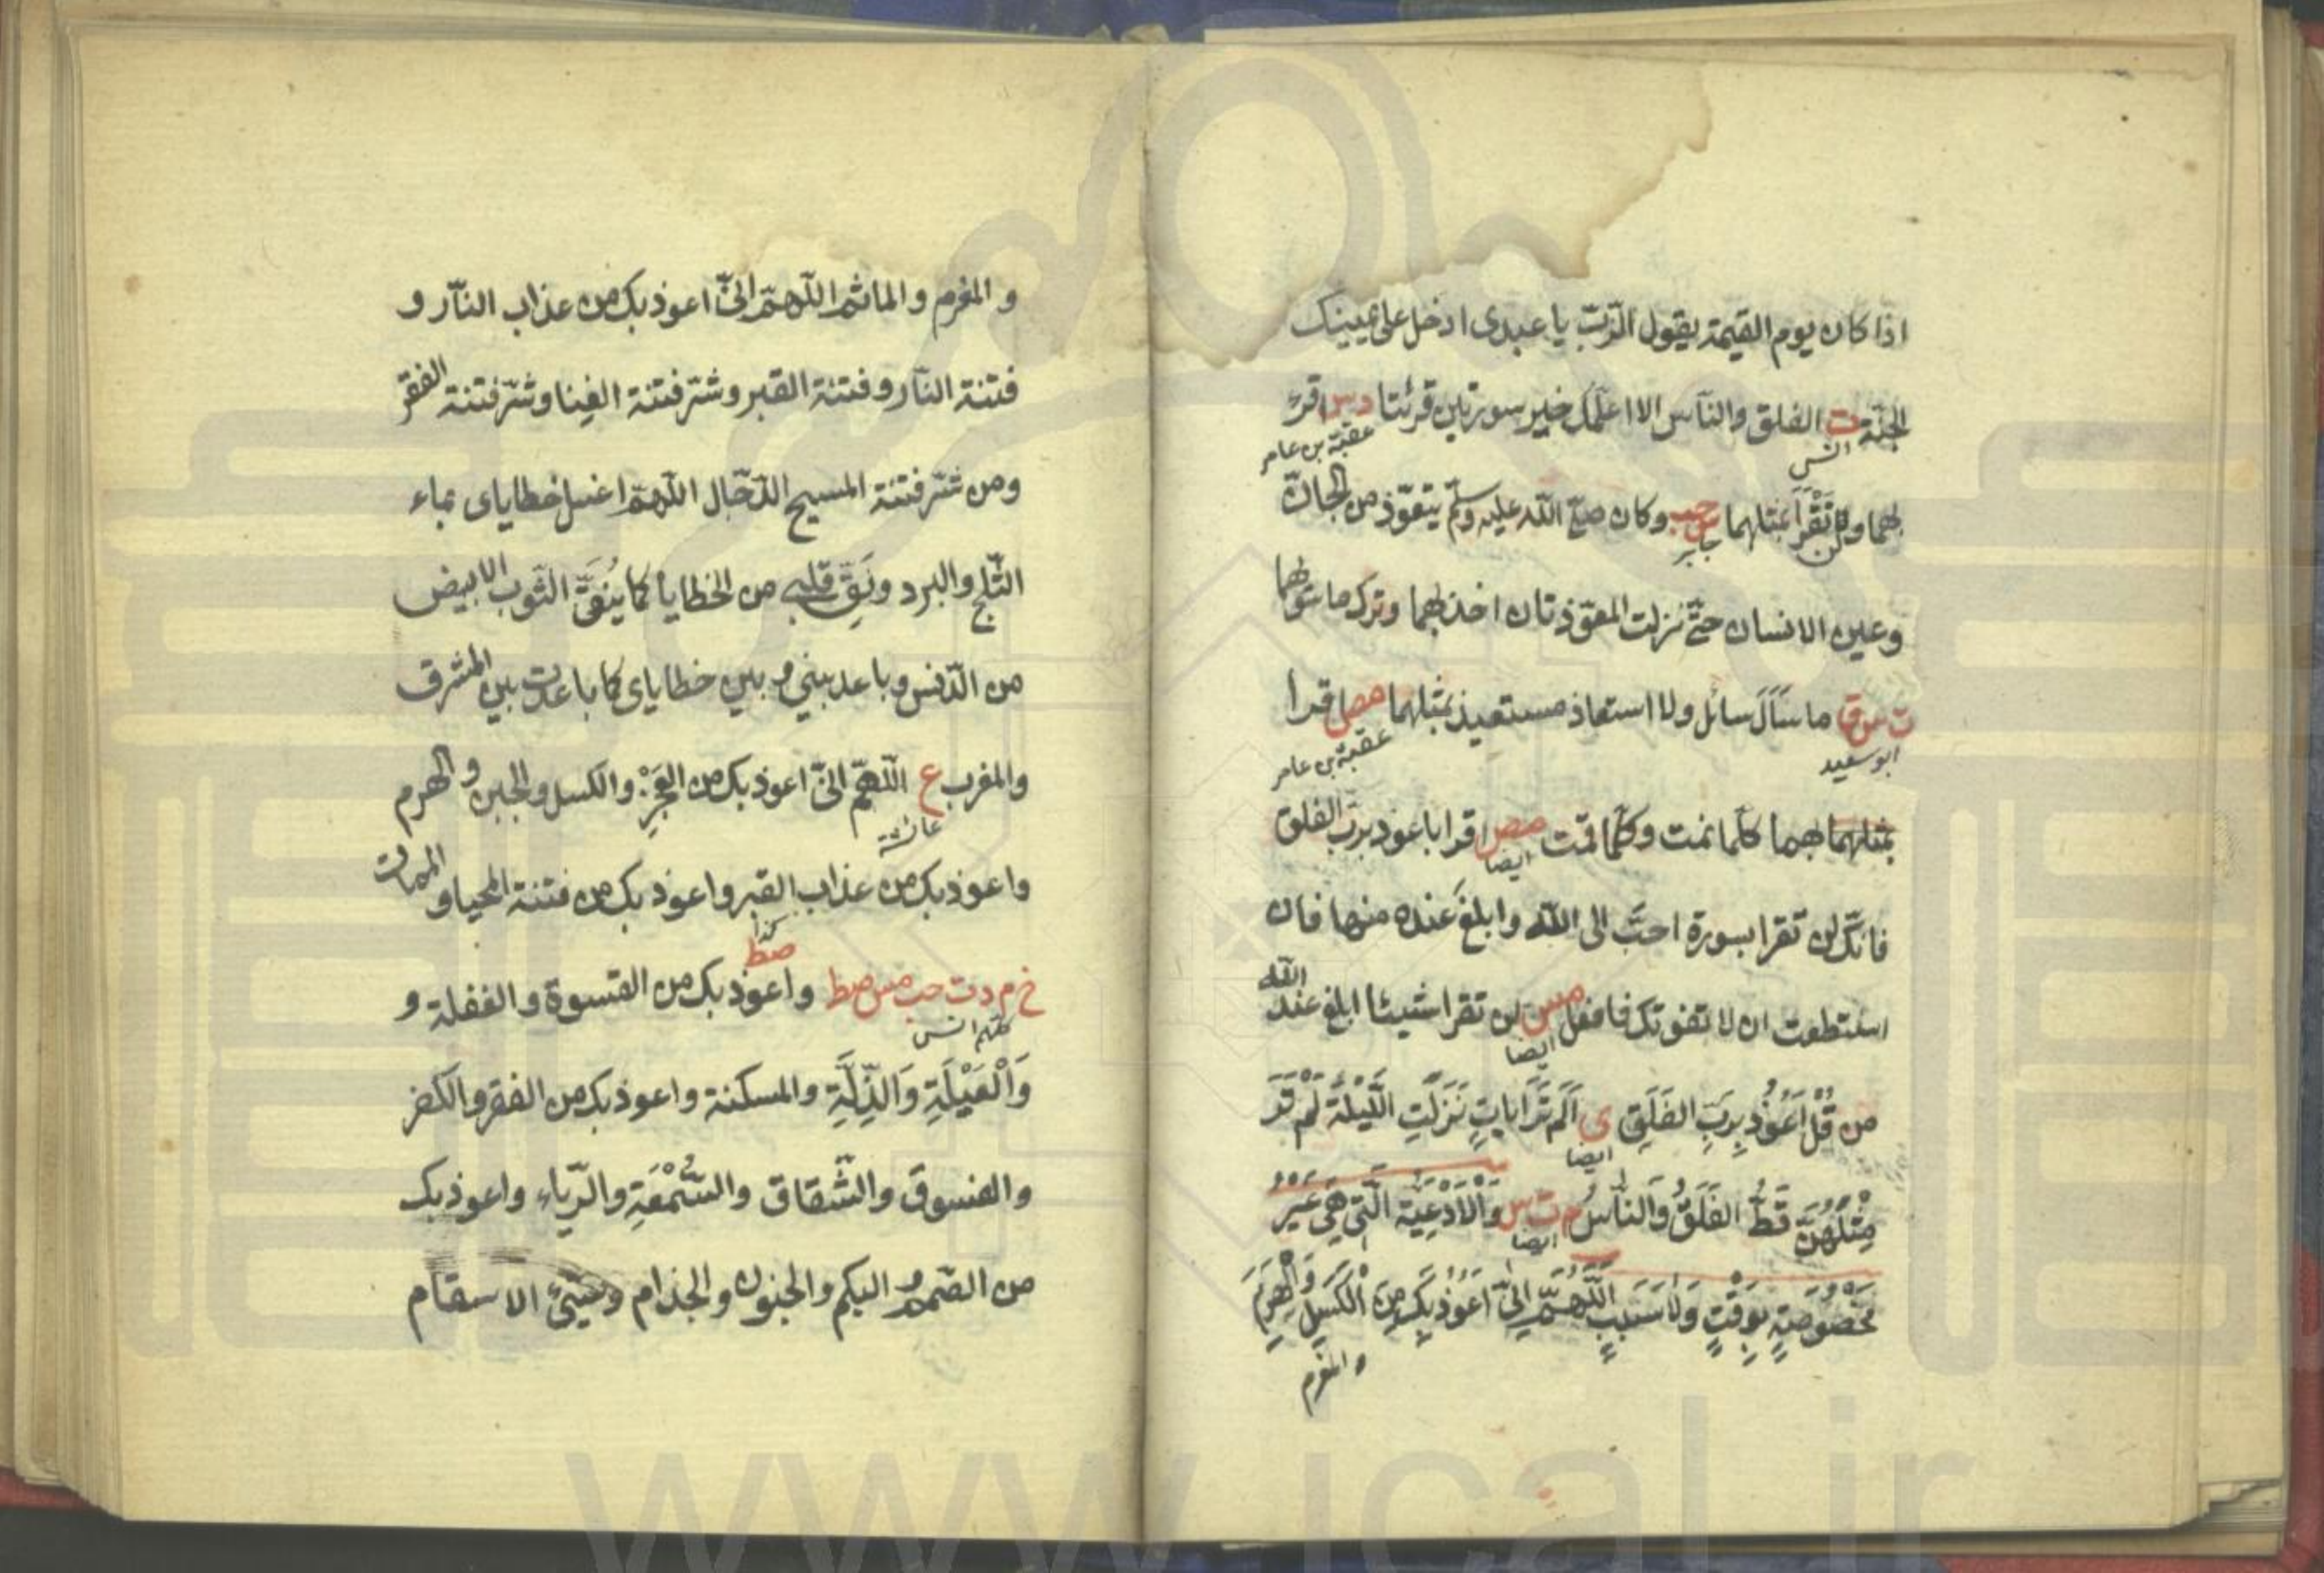 اذا كان يوم القيمة يقول الرّبّ يا عبدى ادخل على يمينك
الجنّة ت الفلق والناس الا اعلمك خير سورتين قرئتا د س اقرء
انس
عقبة بن عامر
بهما ولن تَقْرَأ بمثلهما س حب وكان صلّى اللّه عليه وسلّم يتعوّذ من الجانّ
جابر
وعين الانسان حتّى نزلت المعوّذتان اخذ بهما وترك ما سواهما
ت س ق ما سَأَلَ سائل ولا استعاذ مستعيذ بمثلهما مص اقرا
ابو سعيد
عقبة بن عامر
بمثلهما بهما كلّما نمت وكلّما قمت مص اقرا باعوذ بربّ الفلق
ايضا
فانّك لن تقرا بسورة احبّ الى اللّه وابلغ عنده منها فان
استطعت ان لا تفوتك فافعل مس لن تقرا شيئا ابلغ عند اللّه
ايضا
من قُلْ اَعُوْذُ بِرَبِّ الفَلَقِ ى اَلَمْ تَرَ اياتٍ نَزَلَتِ اللَّيْلَةَ لَمْ تَرَ
ايضا
مِثْلَهُنَّ قَطُّ الفَلَقُ وَالنَاسُ م ت س وَالْاَدْعِيَة الَّتِي هِيَ غَيْرُ
ايضا
مَخْصُوْصَةٍ بِوَقْتٍ وَلا سَبَبٍ اَللّهُمَّ اِنِّي اَعُوْذُ بِكَ مِنَ الْكَسَلِ وَالْهَرَمِ
والمغرم
و المغرم والماثم اللّهمّ انّى اعوذ بك من عذاب النّار و
فتنة النّار وفتنة القبر وشرّ فتنة الغنا وشرّ فتنة الفقر
ومن شرّ فتنة المسيح الدّجّال اللّهمّ اغسل خطاياى بماء
الثّلج والبرد ونَقِّ قلبى من الخطايا كما يُنَقَّى الثّوب الابيض
من الدّنس وباعد بينى وبين خطاياى كما باعدت بين المشرق
والمغرب ع اللّهمّ انّى اعوذ بك من العَجْزِ والكسل والجبن والهرم
عائشة
واعوذ بك من عذاب القبر واعوذ بك من فتنة المحيا والممات
كذا
صط
خ م د ت حب مس صط واعوذ بك من القسوة والغفلة و
كلهم انس
وَالْعَيْلَةِ وَالذِّلَّةِ والمسكنة واعوذ بك من الفقر والكفر
والفسوق والشّقاق والسُّمْعَةِ والرّياء واعوذ بك
من الصّمم والبكم والجنون والجذام وسَيِّئ الاسقام
www.ical.ir